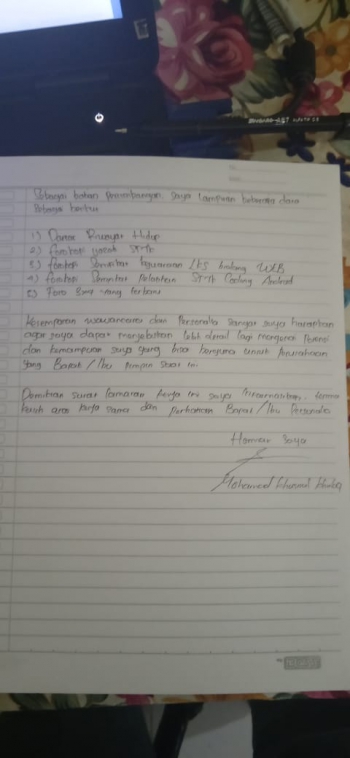 Sebagai bahan pertimbangan, saya lampirkan beberapa data
Sebagai berikut
1) Daftar Riwayat Hidup
2) fotokopi ijazah SMK
3) fotokopi Sertifikat
4) fotokopi Sertifikat Pelatihan SMK Coding Android
5) Foto 3x4 yang terbaru
Kesempatan wawancara dari Personalia sangat saya harapkan
agar saya dapat menjelaskan lebih detail lagi mengenai Potensi
dan kemampuan saya yang bisa berguna untuk Perusahaan
yang Bapak / Ibu pimpin saat ini
Demikian surat lamaran kerja ini saya
kasih atas kerja sama dan perhatian Bapak / Ibu Personalia
Hormat Saya